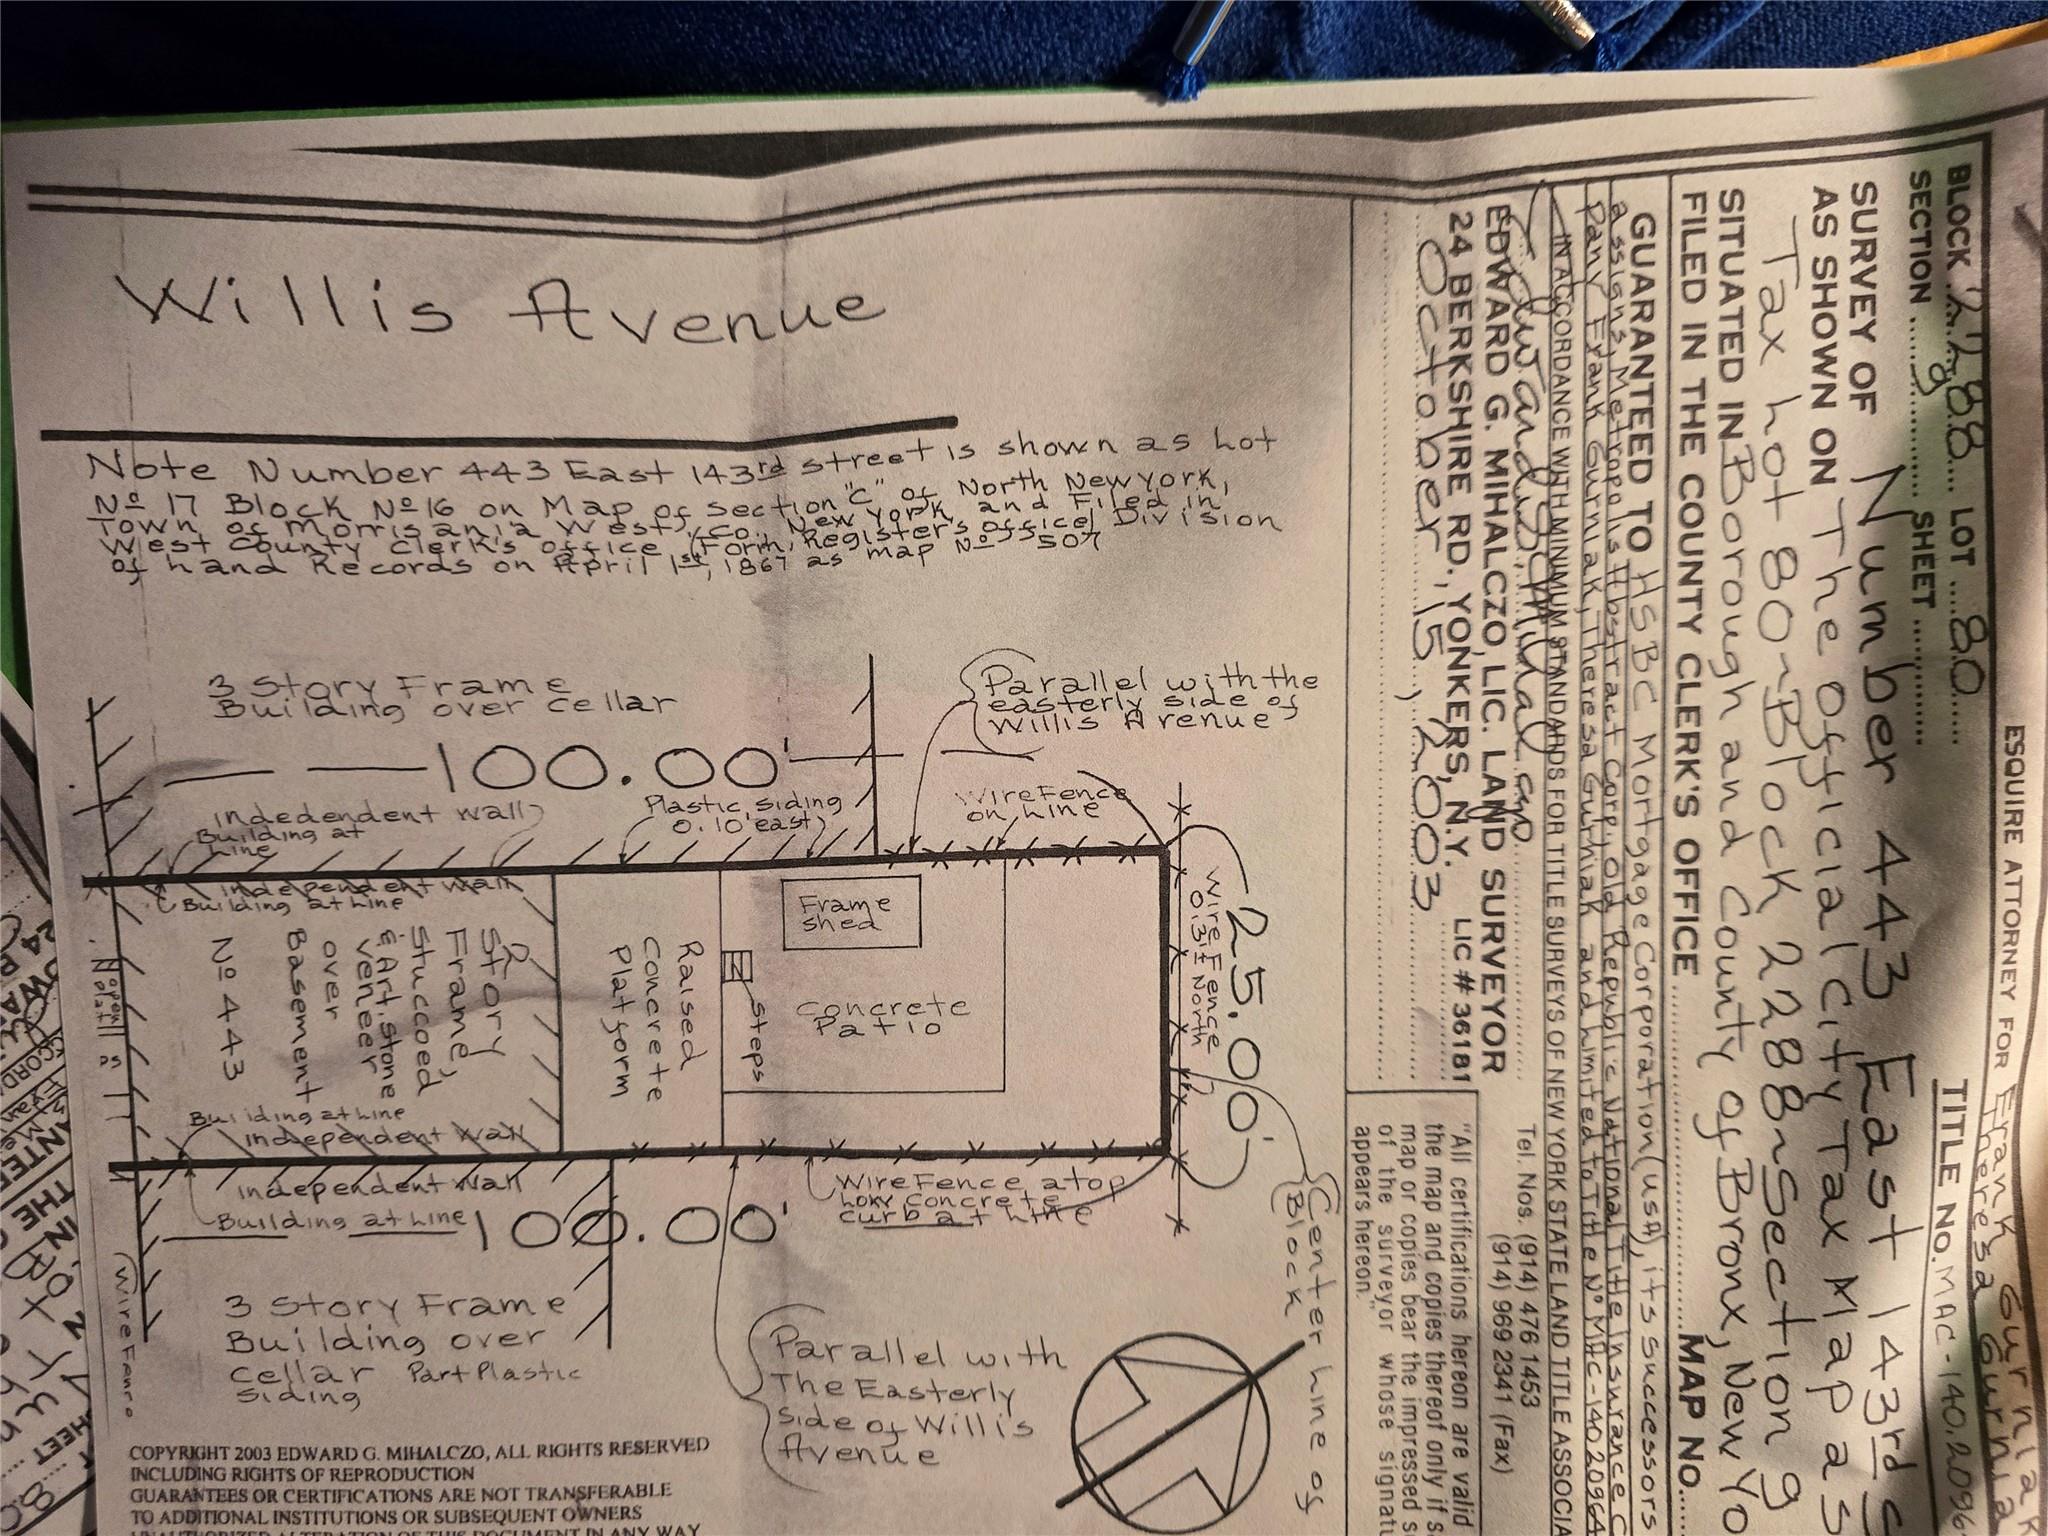 Willis Avenue
Note Number 443 East 143rd street is shown as Lot
Nº 17 Block Nº 16 on Map of Section "C" of North New York,
Town of Morrisania West, Co., New York and Filed in
West County Clerk's office (Form, Register's office) Division
of Land Records on April 1st, 1867 as map Nº 507
3 Story Frame
Building over cellar
100.00'
Parallel with the
easterly side of
Willis Avenue
Indedendent Wall
Building at
Line
Plastic siding
0.10' east
Wire Fence
on Line
Independent Wall
Building at Line
Nº 443
2 Story
Frame,
Stuccoed
& Art. stone
veneer
over
Basement
Raised
Concrete
Platform
Steps
Frame
shed
Concrete
Patio
Wire Fence
0.3'± North
25.00'
Center Line of
Block
Building at Line
Independent Wall
Independent Wall
Building at Line
100.00'
Wire Fence atop
Low Concrete
curb at Line
3 Story Frame
Building over
cellar Part Plastic
siding
Wire Fence
Parallel with
The Easterly
side of Willis
Avenue
COPYRIGHT 2003 EDWARD G. MIHALCZO, ALL RIGHTS RESERVED
INCLUDING RIGHTS OF REPRODUCTION
GUARANTEES OR CERTIFICATIONS ARE NOT TRANSFERABLE
TO ADDITIONAL INSTITUTIONS OR SUBSEQUENT OWNERS
UNAUTHORIZED ALTERATION OF THIS DOCUMENT IN ANY WAY
ESQUIRE ATTORNEY FOR Frank Gurniak
Theresa Gurnia
BLOCK 2288 LOT 80
SECTION 9 SHEET
TITLE NO. MAC-140,2096
SURVEY OF Number 443 East 143rd S
AS SHOWN ON The official City Tax Map as
Tax Lot 80~Block 2288~Section 9
SITUATED IN Borough and County of Bronx, New Yo
FILED IN THE COUNTY CLERK'S OFFICE MAP NO.
GUARANTEED TO HSBC Mortgage Corporation (USA), its successors
assigns, Metropolis Abstract Corp, Old Republic National Title Insurance C
pany Frank Gurniak, Theresa Gurniak and Limited to Title Nº MAC-140,2096
IN ACCORDANCE WITH MINIMUM STANDARDS FOR TITLE SURVEYS OF NEW YORK STATE LAND TITLE ASSOCIA
EDWARD G. MIHALCZO, LIC. LAND SURVEYOR
24 BERKSHIRE RD., YONKERS, N.Y. LIC # 36181
Tel. Nos. (914) 476 1453
(914) 969 2341 (Fax)
October 15, 2003
"All certifications hereon are valid
the map and copies thereof only if s
map or copies bear the impressed s
of the surveyor whose signatu
appears hereon."